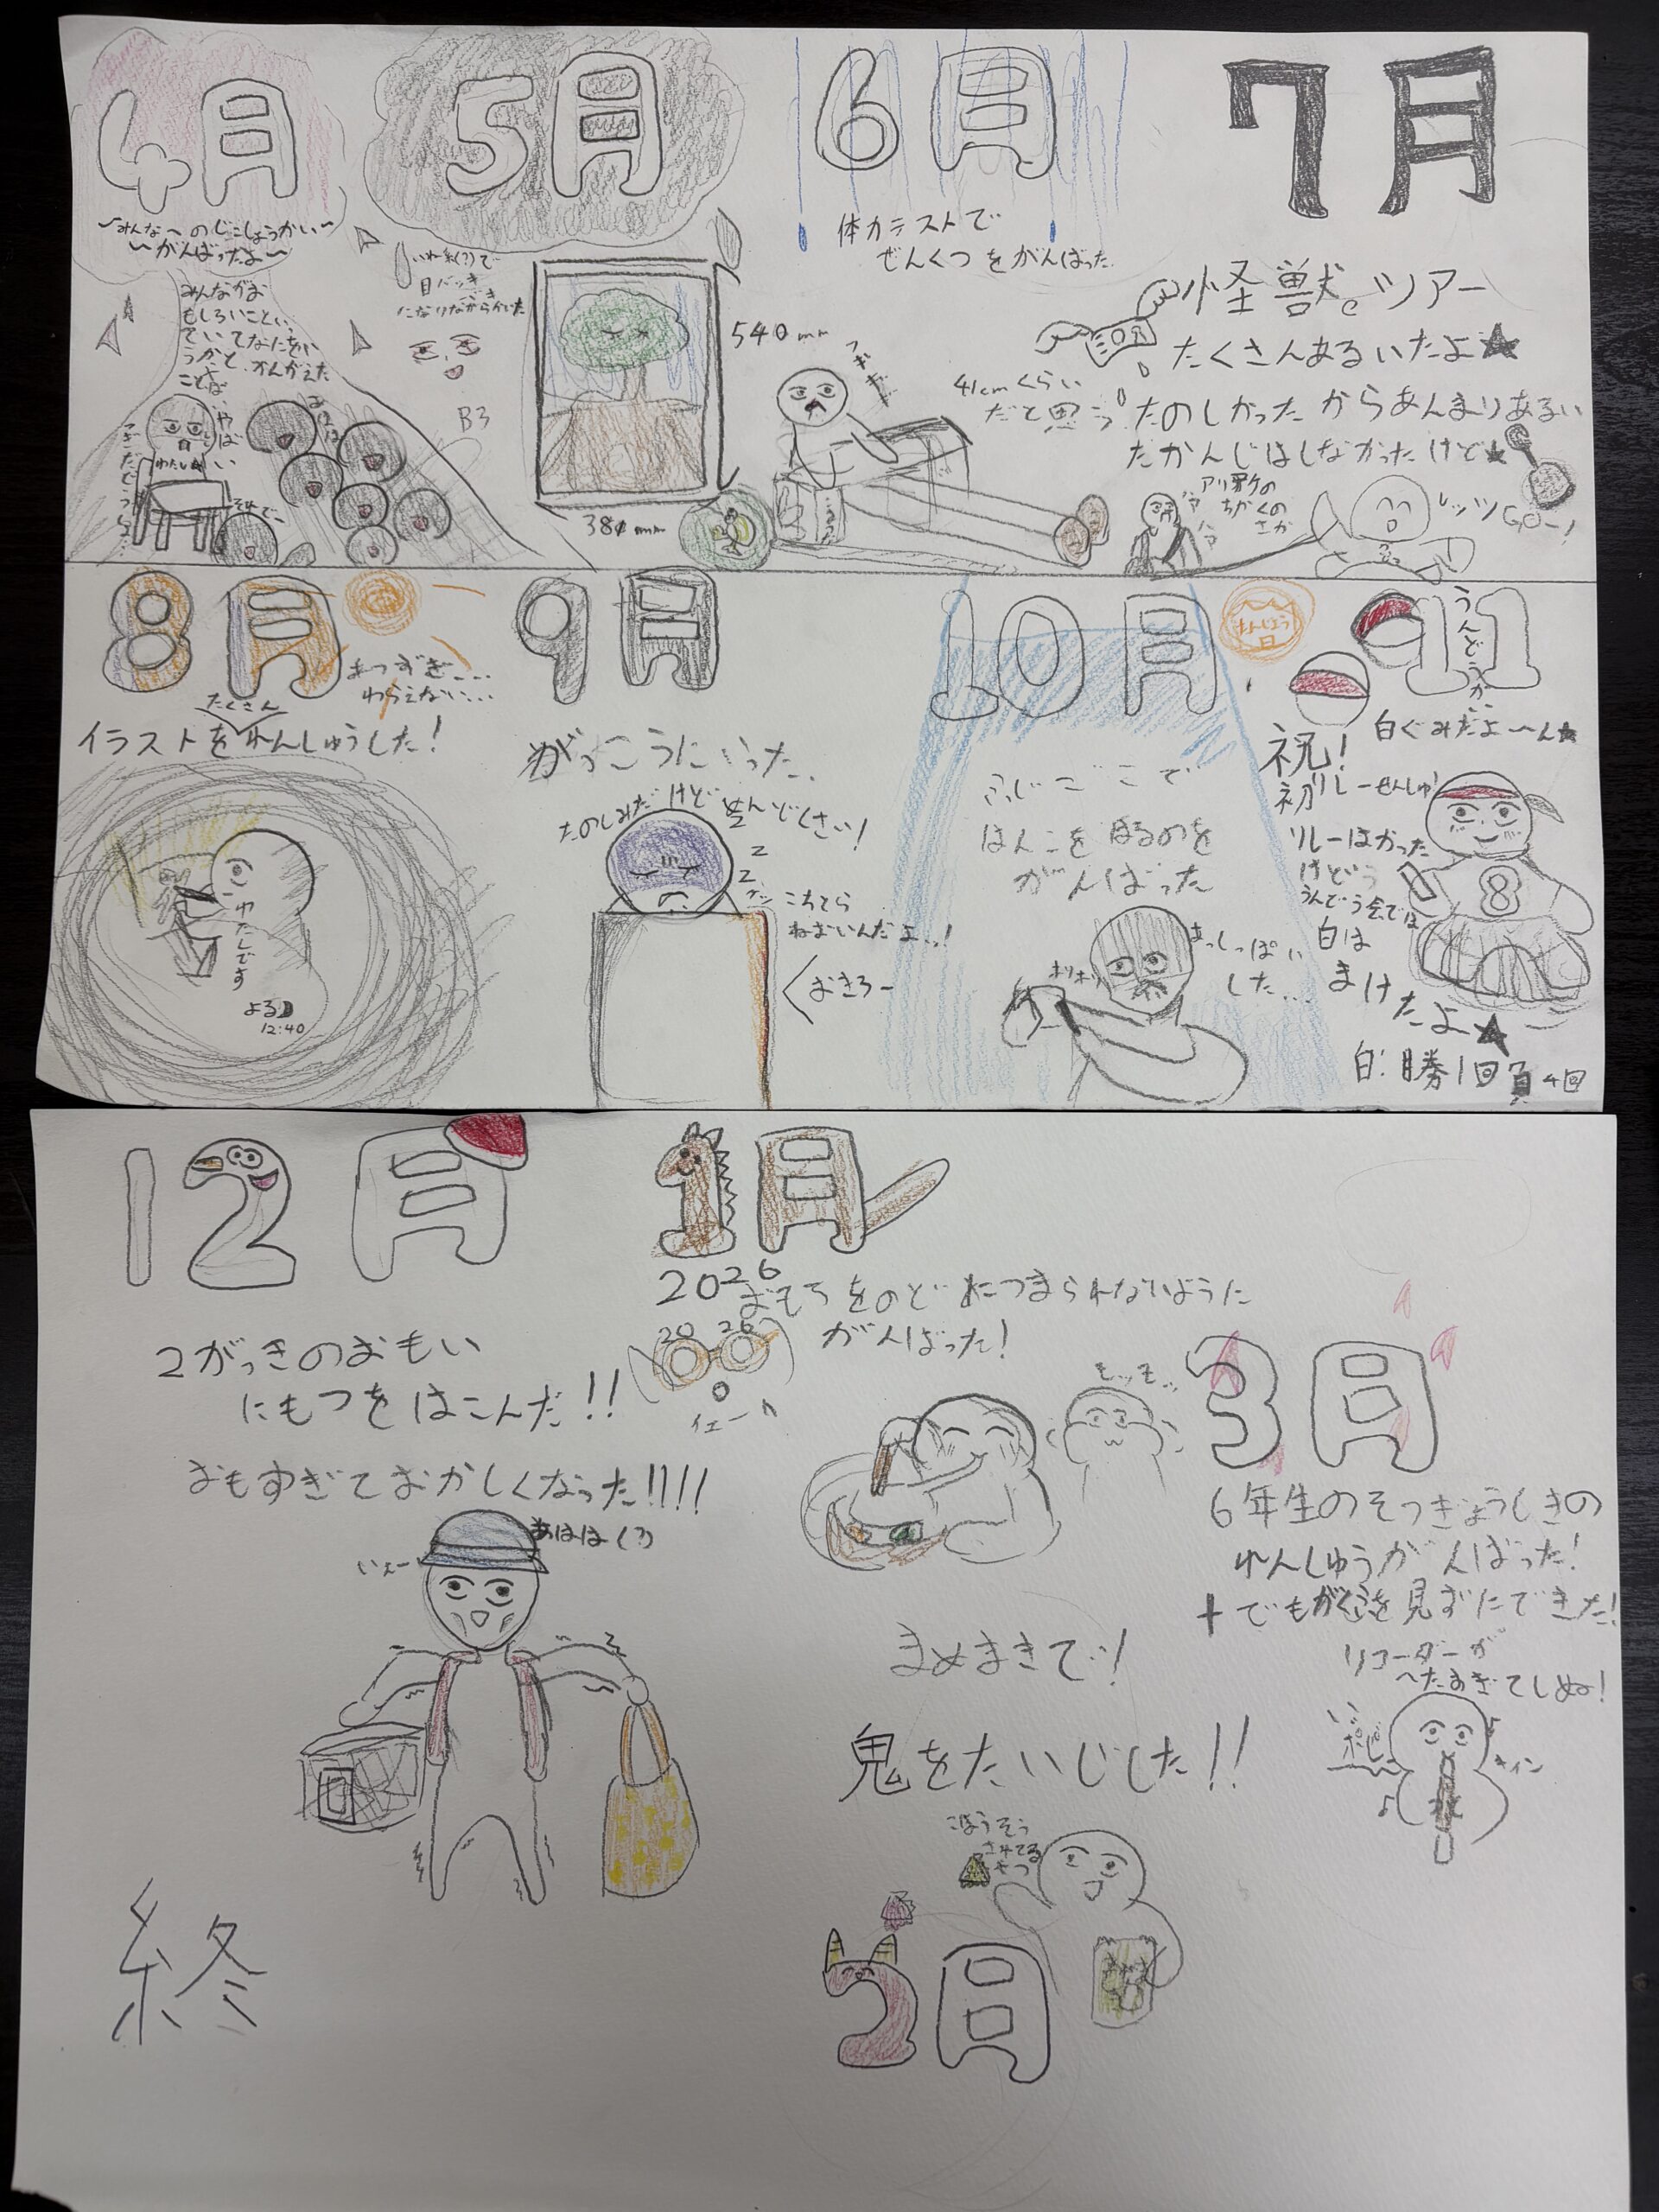 4月
〜みんなへのじこしょうかい〜
〜がんばったよ〜
みんながお
もしろいことい
ていてなにをい
うかと、かんがえた
ことば
やばい
わたし
それでー
5月
目バッキ
になりながらかいた
B3
540mm
380mm
6月
体力テストで
ぜんくつをがんばった
41cmくらい
だと思う
7月
怪獣eツアー
たくさんあるいたよ★
たのしかったからあんまりあるい
だかんじはしなかったけど★
ちかくの
さか
レッツ
GOー!
8月
あつすぎ....
わらえない...
たくさん
イラストをれんしゅうした!
わたしです
よる
12:40
9月
がっこうにいった
たのしみだけどめんどくさい!
Z
Z
こちとら
ねむいんだよ..!
おきろー
10月
たんじょう
日
ふじこここで
はんこをほるのを
がんばった
ホリホリ
まっしっぱい
した...
11
うんどうかい
白ぐみだよ〜ん★
祝!
初リレーせんしゅ
リレーはかった
けどう
うんどう会では
白は
まけ
たよ★
8
白:勝1回負4回
12月
2がっきのおもい
にもつをはこんだ!!
おもすぎておかしくなった!!!!
いえー
あはは(?)
終
1月
2026
おもちをのどにつまられないように
がんばった!
20 26
イエーイ
モッモッ
まめまきで!
鬼をたいじした!!
ごぼうそう
させてる
やつ
2月
3月
6年生のそつぎょうしきの
れんしゅうがんばった!
+でもがくふを見ずにできた!
リコーダーが
へたすぎてしぬ!
キイン